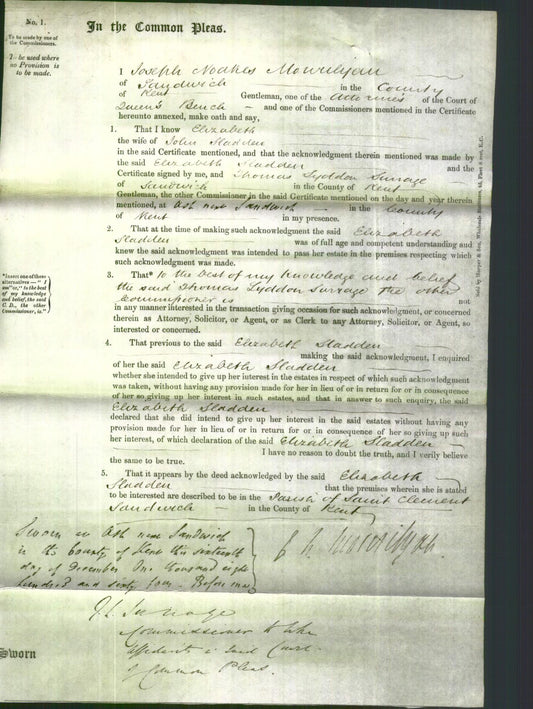 No. 1.
To be made by one of
the Commissioners.
To be used where
no Provision is
to be made.
In the Common Pleas.
I Joseph Noakes Mourilyan
of Sandwich in the County
of Kent Gentleman, one of the Attornies of the Court of
Queen's Bench and one of the Commissioners mentioned in the Certificate
hereunto annexed, make oath and say,
1. That I know Elizabeth
the wife of John Sladden
in the said Certificate mentioned, and that the acknowledgment therein mentioned was made by
the said Elizabeth Sladden and the
Certificate signed by me, and Thomas Lyddon Surrage
of Sandwich in the County of Kent
Gentleman, the other Commissioner in the said Certificate mentioned on the day and year therein
mentioned, at Ash near Sandwich in the County
of Kent in my presence.
2. That at the time of making such acknowledgment the said Elizabeth
Sladden was of full age and competent understanding and
knew the said acknowledgment was intended to pass her estate in the premises respecting which
such acknowledgment was made.
*Insert one of these
alternatives—"I
am" or, "to the best
of my knowledge
and belief, the said
C. D., the other
Commissioner, is."
3. That* to the best of my knowledge and belief
the said Thomas Lyddon Surrage the other
Commissioner is not
in any manner interested in the transaction giving occasion for such acknowledgment, or concerned
therein as Attorney, Solicitor, or Agent, or as Clerk to any Attorney, Solicitor, or Agent, so
interested or concerned.
4. That previous to the said Elizabeth Sladden
making the said acknowledgment, I enquired
of her the said Elizabeth Sladden
whether she intended to give up her interest in the estates in respect of which such acknowledgment
was taken, without having any provision made for her in lieu of or in return for or in consequence
of her so giving up her interest in such estates, and that in answer to such enquiry, the said
Elizabeth Sladden
declared that she did intend to give up her interest in the said estates without having any
provision made for her in lieu of or in return for or in consequence of her so giving up such
her interest, of which declaration of the said Elizabeth Sladden
I have no reason to doubt the truth, and I verily believe
the same to be true.
5. That it appears by the deed acknowledged by the said Elizabeth
Sladden that the premises wherein she is stated
to be interested are described to be in the Parish of Saint Clement
Sandwich in the County of Kent
Sworn at Ash near Sandwich
in the County of Kent this sixteenth
day of December One thousand eight
hundred and sixty four Before me
J N Mourilyan
T L Surrage
Commissioner to take
affidavits in said Court
of Common Pleas.
Sworn